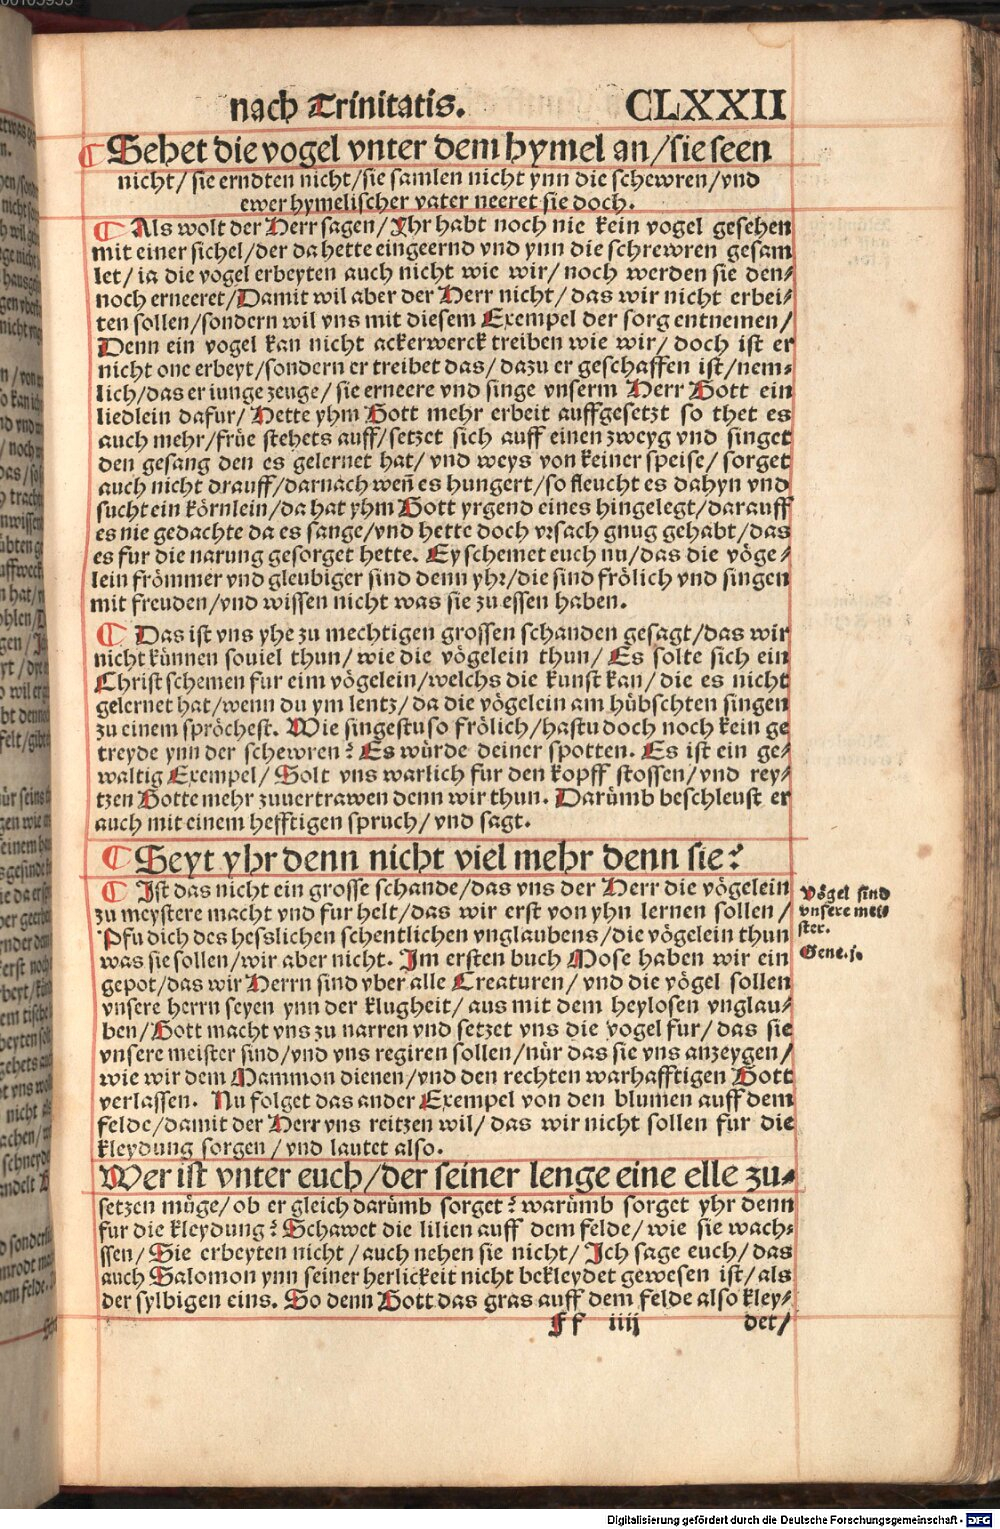 nach Trinitatis. CLXXII
Sehet die vogel vnter dem hymel an/sie seen
nicht/ sie erndten nicht/sie samlen nicht ynn die schewren/vnd
ewer hymelischer vater neeret sie doch.
Als wolt der Herr sagen/ Yhr habt noch nie kein vogel gesehen
mit einer sichel/der da hette eingeernd vnd ynn die schrewren gesam
let/ia die vogel erbeyten auch nicht wie wir/noch werden sie den-
noch erneeret/Damit wil aber der Herr nicht/das wir nicht erbei-
ten sollen/sondern wil vns mit diesem Exempel der sorg entnemen/
Denn ein vogel kan nicht ackerwerck treiben wie wir/ doch ist er
nicht one erbeyt/sondern er treibet das/dazu er geschaffen ist/nem-
lich/das er iunge zeuge/ sie erneere vnd singe vnserm Herr Gott ein
liedlein dafur/ Hette yhm Gott mehr erbeit auffgesetzt so thet es
auch mehr/früe stehets auff/setzet sich auff einen zweyg vnd singet
den gesang den es gelernet hat/ vnd weys von keiner speise/ sorget
auch nicht drauff/darnach weñ es hungert/so fleucht es dahyn vnd
sucht ein körnlein/da hat yhm Gott yrgend eines hingelegt/darauff
es nie gedachte da es sange/vnd hette doch vrsach gnug gehabt/das
es fur die narung gesorget hette. Ey schemet euch nu/das die vöge-
lein frömmer vnd gleubiger sind denn yhr/die sind frölich vnd singen
mit freuden/vnd wissen nicht was sie zu essen haben.
Das ist vns yhe zu mechtigen grossen schanden gesagt/das wir
nicht künnen souiel thun/ wie die vögelein thun/ Es solte sich ein
Christ schemen fur eim vögelein/welchs die kunst kan/ die es nicht
gelernet hat/wenn du ym lentz/ da die vögelein am hübschten singen
zu einem spröchest. Wie singestu so frölich/hastu doch noch kein ge
treyde ynn der schewren? Es würde deiner spotten. Es ist ein ge-
waltig Exempel/ Solt vns warlich fur den kopff stossen/ vnd rey-
tzen Gotte mehr zuuertrawen denn wir thun. Darümb beschleust er
auch mit einem hefftigen spruch/ vnd sagt.
Seyt yhr denn nicht viel mehr denn sie?
Ist das nicht ein grosse schande/das vns der Herr die vögelein
zu meystere macht vnd fur helt/das wir erst von yhn lernen sollen/
Pfu dich des hesslichen schentlichen vnglaubens/die vögelein thun
was sie sollen/wir aber nicht. Im ersten buch Mose haben wir ein
gepot/das wir Herrn sind vber alle Creaturen/ vnd die vögel sollen
vnsere herrn seyen ynn der klugheit/ aus mit dem heylosen vnglau-
ben/Gott macht vns zu narren vnd setzet vns die vogel fur/ das sie
vnsere meister sind/vnd vns regiren sollen/nür das sie vns anzeygen/
wie wir dem Mammon dienen/vnd den rechten warhafftigen Gott
verlassen. Nu folget das ander Exempel von den blumen auff dem
felde/damit der Herr vns reitzen wil/ das wir nicht sollen fur die
kleydung sorgen/ vnd lautet also.
Vögel sind
vnsere mei-
ster.
Gene.j.
Wer ist vnter euch/der seiner lenge eine elle zu-
setzen müge/ob er gleich darümb sorget? warümb sorget yhr denn
fur die kleydung? Schawet die lilien auff dem felde/wie sie wach-
ssen/ Sie erbeyten nicht/auch nehen sie nicht/ Ich sage euch/das
auch Salomon ynn seiner herlickeit nicht bekleydet gewesen ist/als
der sylbigen eins. So denn Gott das gras auff dem felde also kley-
Ff iiij det/
Digitalisierung gefördert durch die Deutsche Forschungsgemeinschaft - DFG